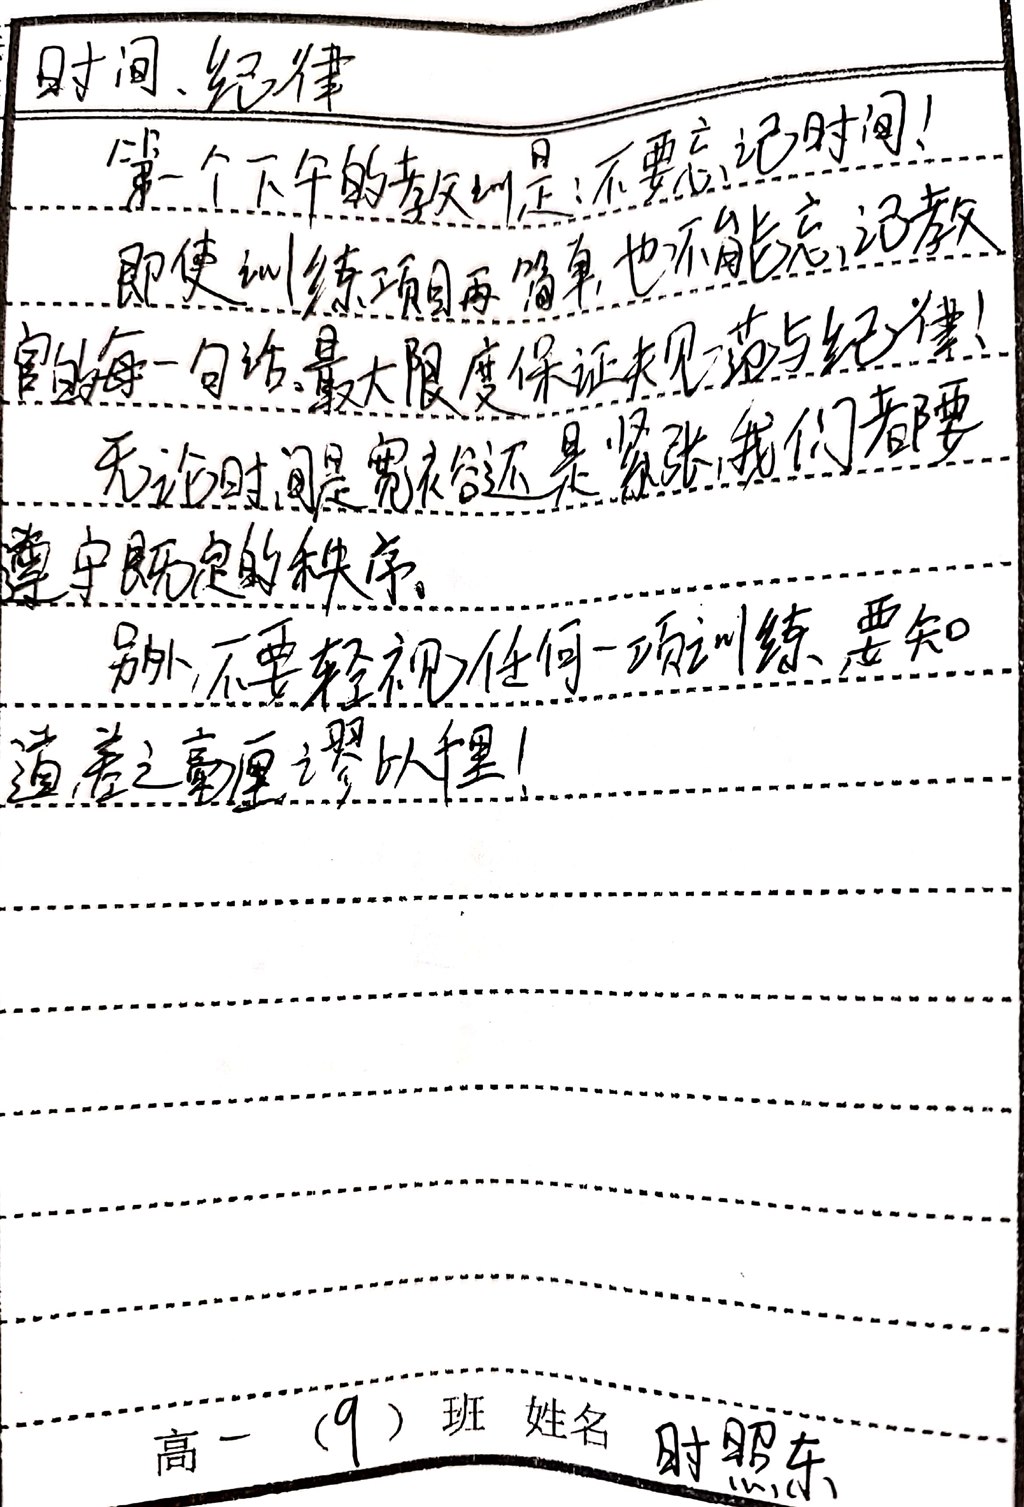 时间、纪律
第一个下午的教训是:不要忘记时间!
即使训练项目再简单,也不能忘记教
官的每一句话。最大限度保证规范与纪律!
无论时间是宽裕还是紧张,我们都要
遵守既定的秩序。
另外,不要轻视任何一项训练、要知
道,差之毫厘,谬以千里!
高一(9)班 姓名 时照东